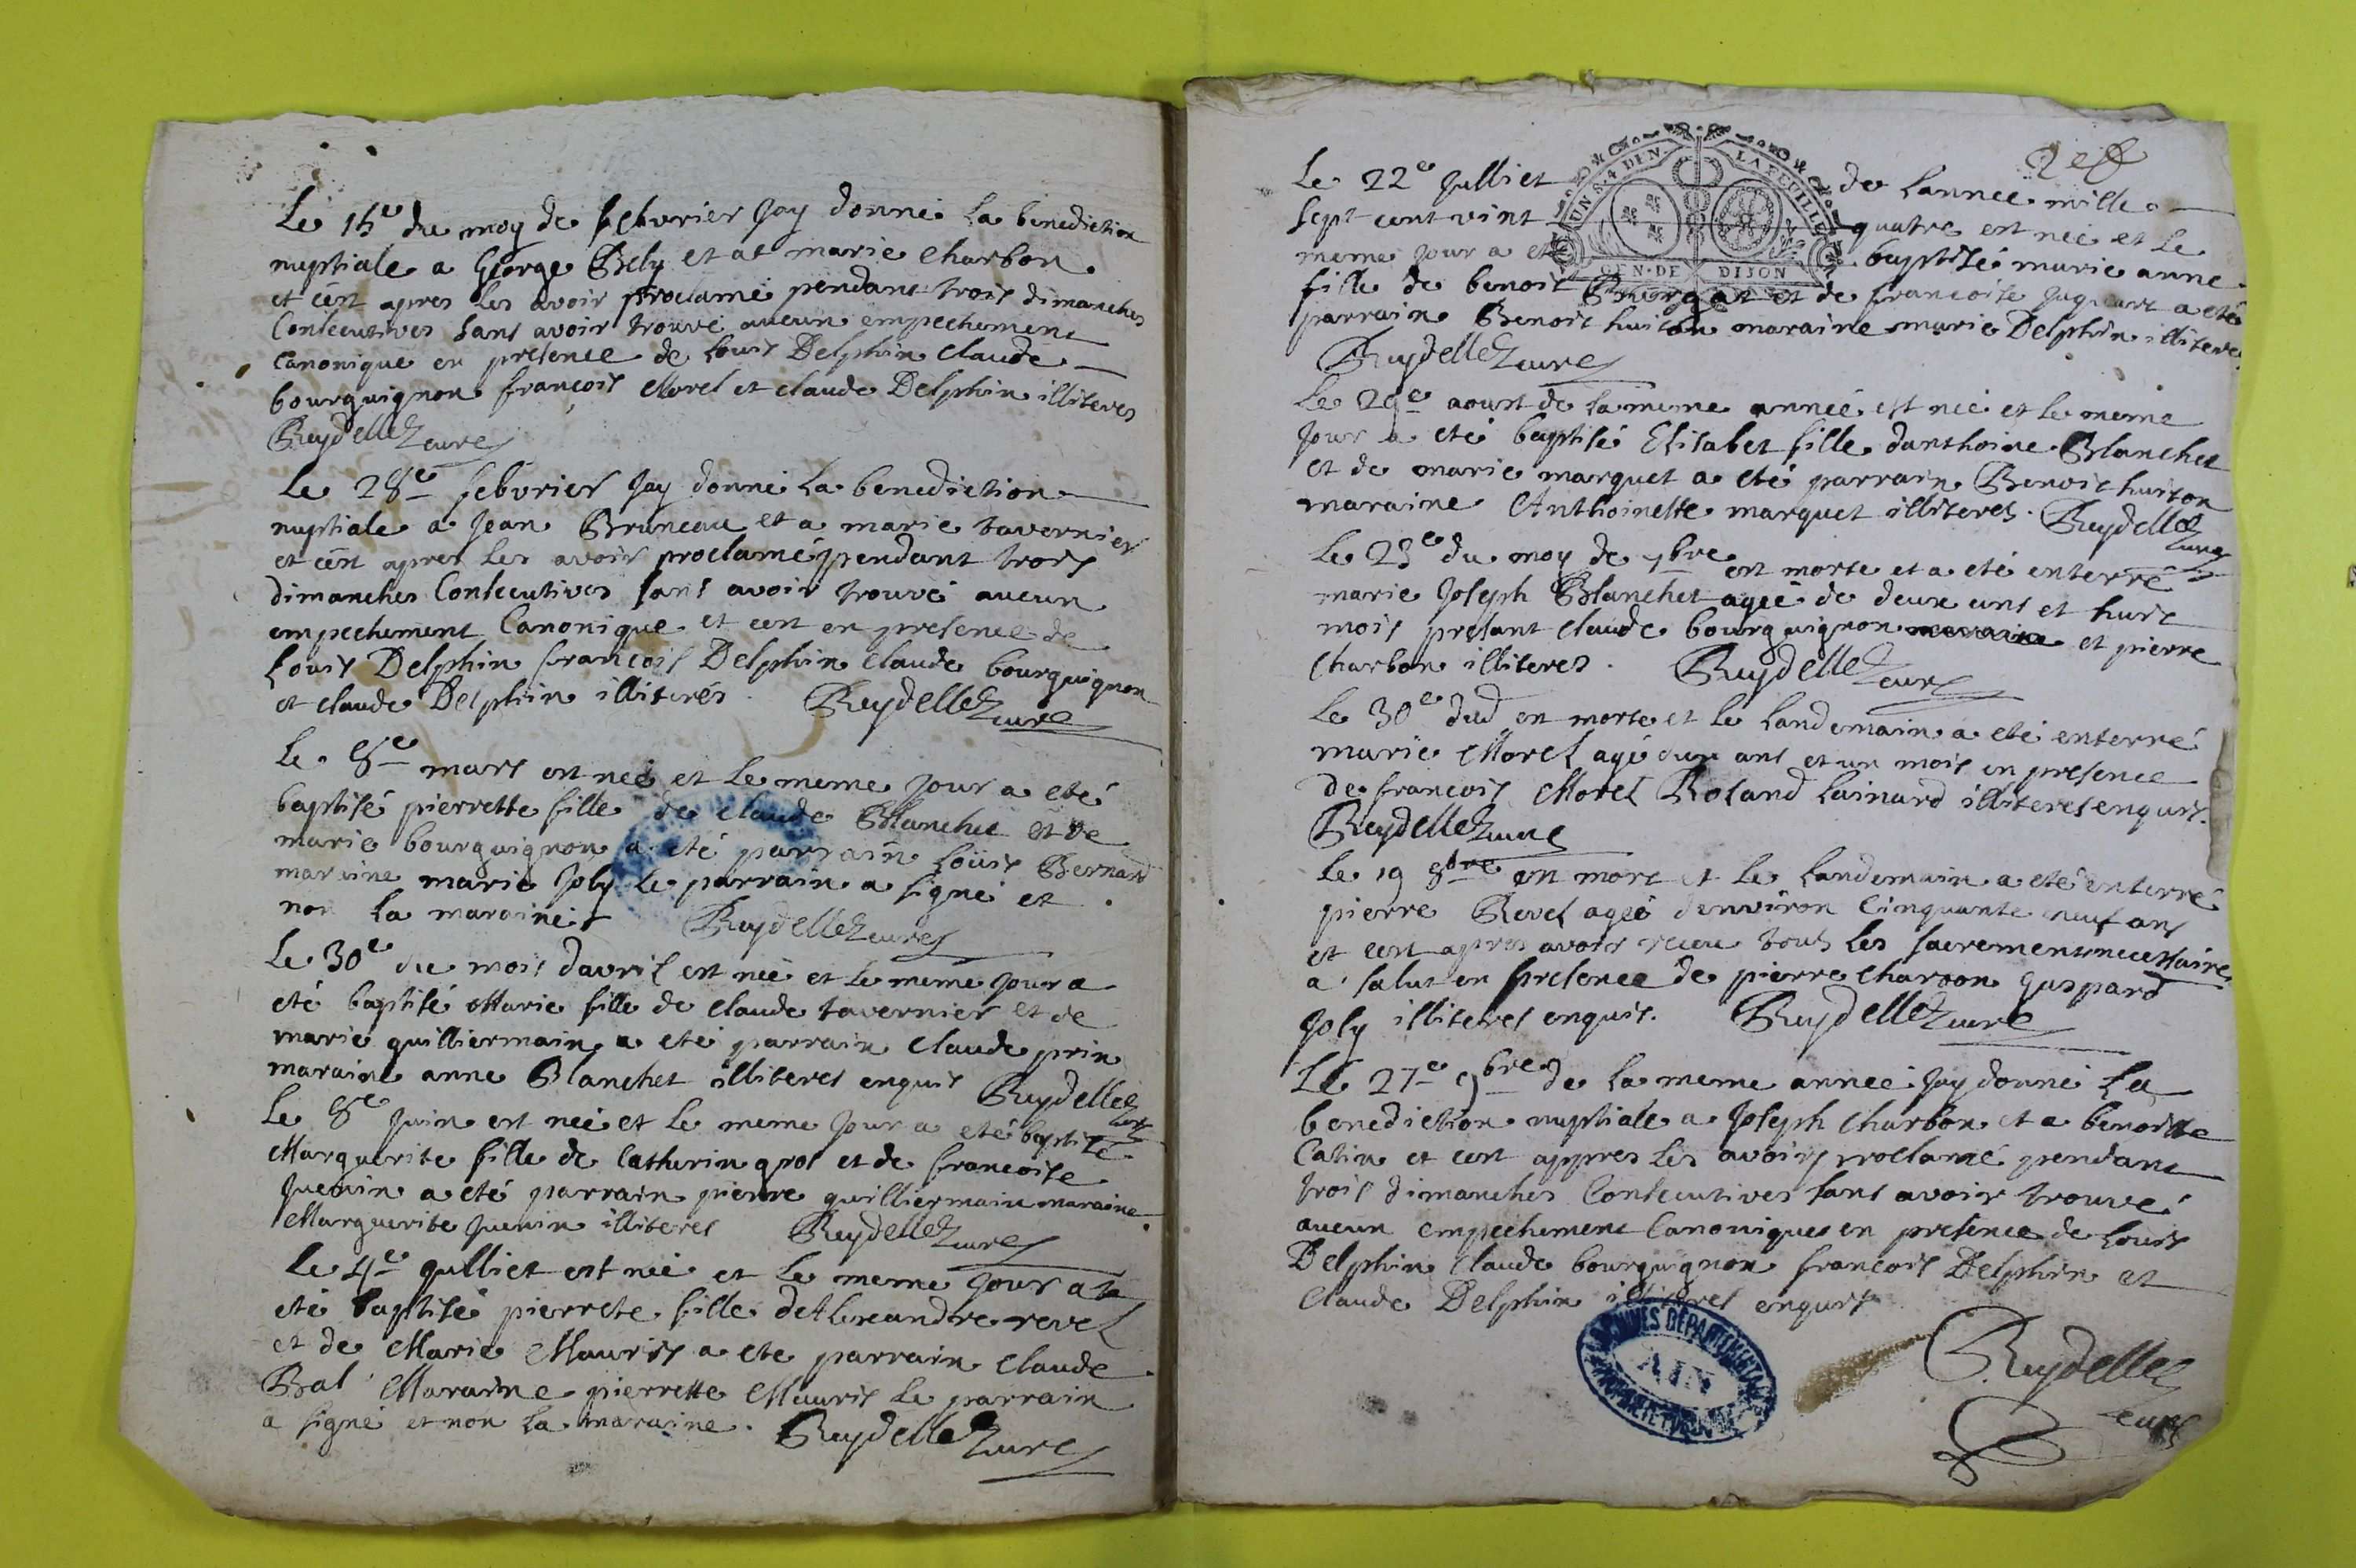 Le 15e du moy de febvrier Jay donné La benediction
nuptiale a George Bely et at marie Charbon
et c'est apres les avoir proclamé pendant trois dimanches
Consecutives sans avoir trouvé aucun empechement
Canonique en presence de Louis Delphin Claude
bourguignon françois Morel et claude Delphin illiteres
Reydellet curé
Le 28e febvrier Jay donné La benediction
nuptiale a Jean Bruneau et a marie tavernier
et c'est apres Les avoir proclamé pendant trois
dimanches Consecutives sans avoir trouvé aucun
empechement Canonique et cest en presence de
Louis Delphin françois Delphin claude bourguignon
et claude Delphin illiterés Reydellet curé
Le 8e mars est neé et Le meme jour a eté
baptisé pierrette fille de claude Blanchet et de
marie bourguignon a eté parrain Loüis Bernard
maraine marie Joly Le parrain a signé et
non La maraine Reydellet curé
Le 30e du mois davril est neé et Le meme jour a
eté baptisé Marie fille de claude tavernier et de
marie guilliermain a eté parrain claude prin
maraine anne Blanchet illiteres enquis Reydellet curé
Le 8e Juin est neé et Le meme jour a eté baptisé
Marguerite fille de Catherin gros et de francoise
Juenin a eté parrain pierre guilliermain maraine
Marguerite Juenin illiteres Reydellet curé
Le 4e Julliet est neé et Le meme jour at
eté baptisé pierrete fille de Alexandre revel
et de Marie Mauris a ete parrain Claude
Bal Maraine pierrette Mauris Le parrain
a signé et non La maraine. Reydellet curé
2e
UN S. 4 DEN. LA FEUILLE
GEN. DE DIJON
Le 22e Julliet de Lanneé mille
sept cent vint quatre est neé et Le
meme jour a eté baptisé marie anne
fille de benoit et de francoise a eté
parrain Benoit huiton maraine marie Delphin illiteres
Reydellet curé
Le 29e aoust de La meme anneé est neé et Le meme
jour a eté baptisé Elisabet fille danthoine Blanchet
et de marie marquet a eté parrain Benoit huiton
maraine Anthoinette marquet illiteres. Reydellet curé
Le 25e du moy de 7bre est morte et a eté enterré
marie Joseph Blanchet ageé de deux ans et huit
mois presant claude bourguignon et pierre
Charbon illiteres. Reydellet curé
Le 30e dud est morte et Le Landemain a eté enterré
marie Morel agé dun ans et un mois en presence
de francois Morel Roland Lainard illiteres enquis.
Reydellet curé
Le 19 8bre est mort et Le Landemain a eté enterré
pierre Revel ageé denviron Cinquante neuf ans
et cest apres avoir receu tous Les sacrements necessaires
a salut en presence de pierre Charbon gaspard
Joly illiteres enquis. Reydellet curé
Le 27e 9bre de La meme anneé Jay donné La
benediction nuptiale a Joseph Charbon et a benoitte
Catin et cest appres Les avoir proclamé pendant
trois dimanches Consecutives sans avoir trouvé
aucun empechement Canoniques en presence de Louis
Delphin claude bourguignon francois Delphin et
Claude Delphin illiteres enquis
Reydellet
curé
ARCHIVES DÉPARTEMENTALES
AIN
PROPRIÉTÉ PUBLIQUE